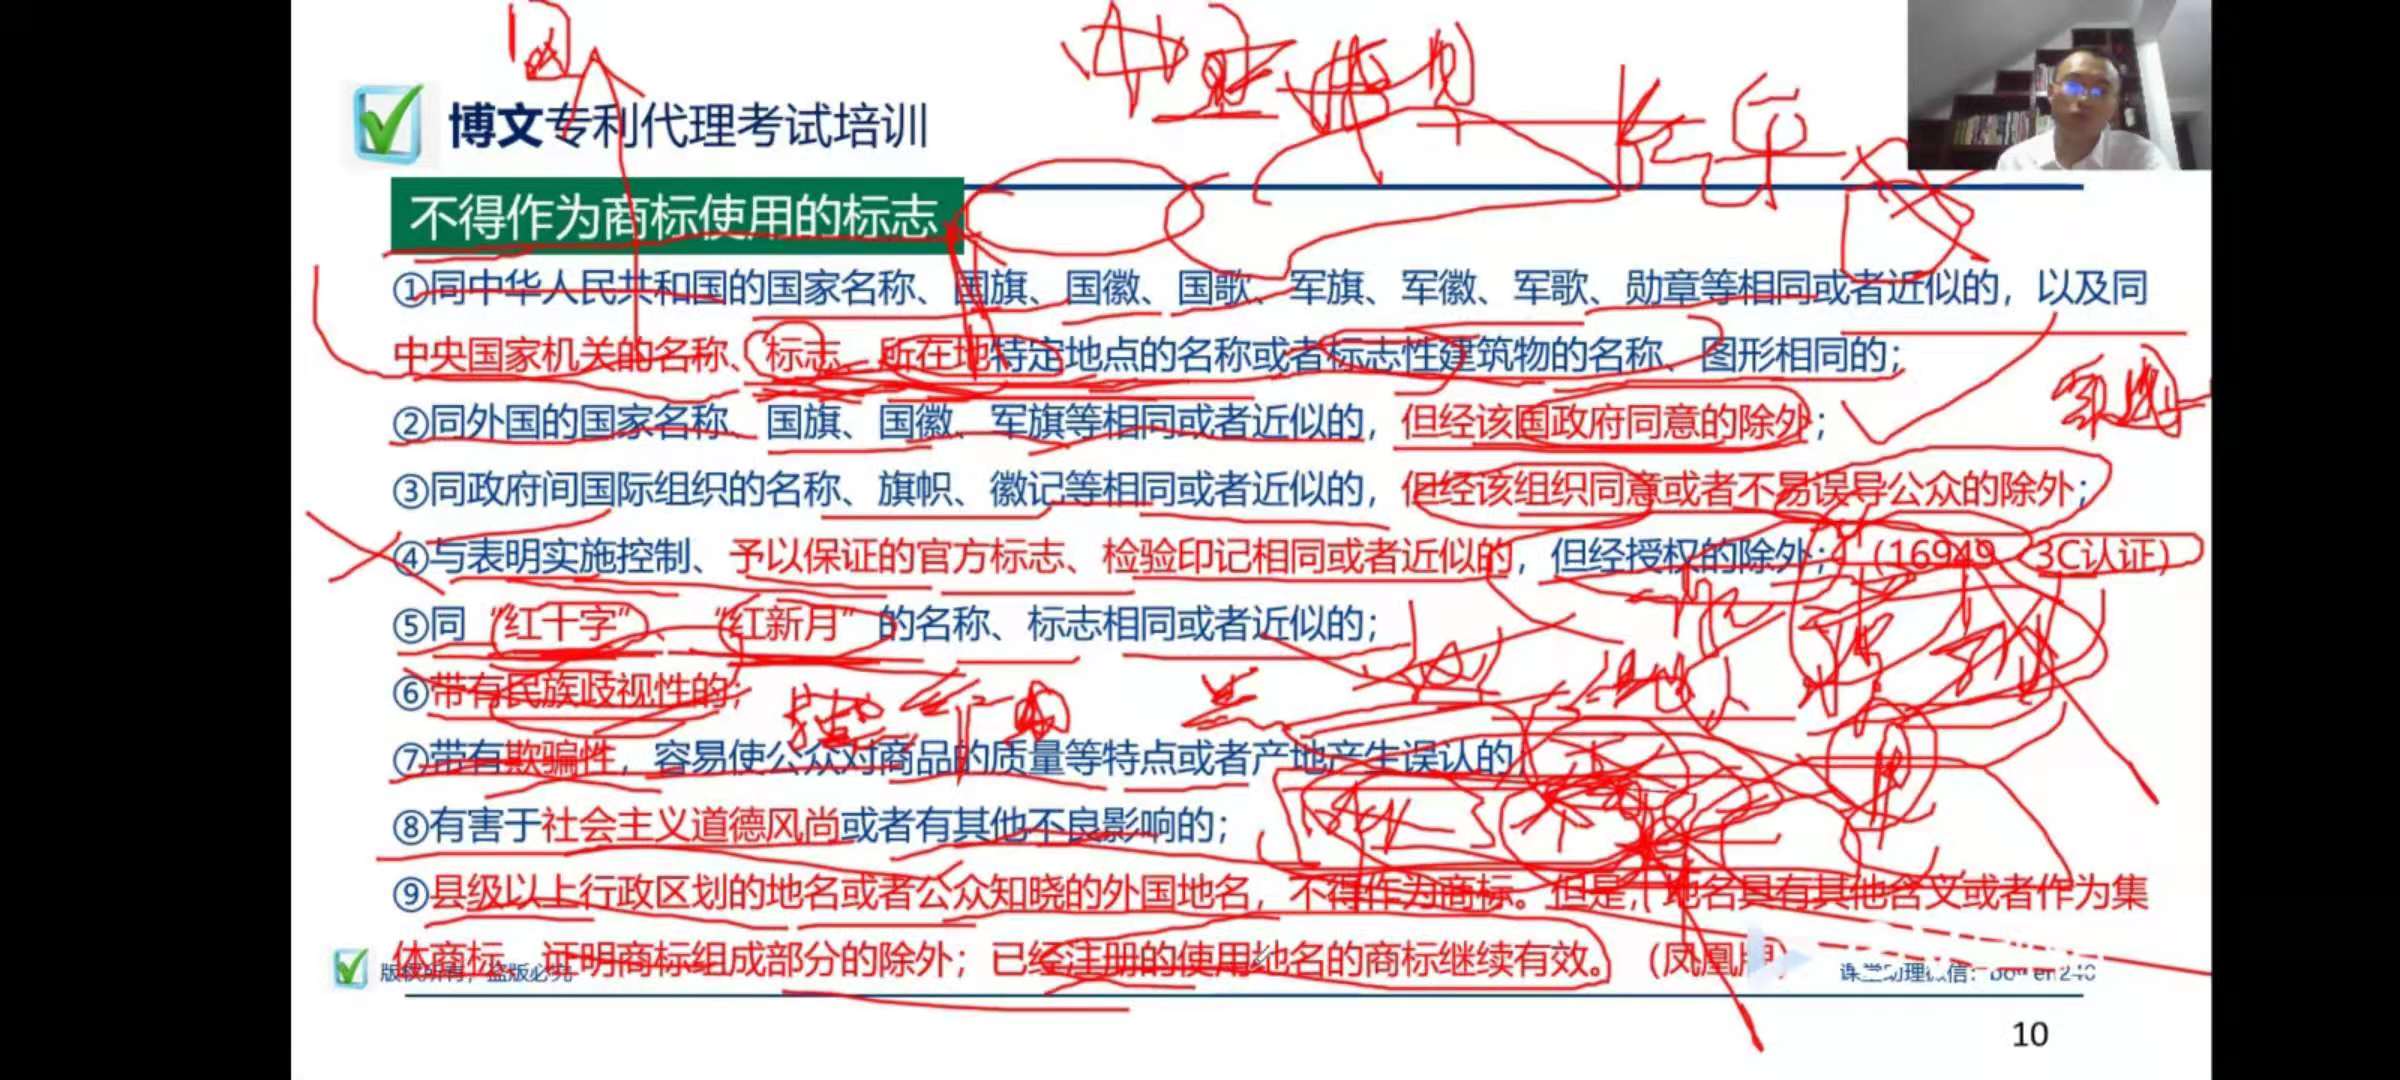 博文专利代理考试培训
不得作为商标使用的标志
①同中华人民共和国的国家名称、国旗、国徽、国歌、军旗、军徽、军歌、勋章等相同或者近似的，以及同
中央国家机关的名称、标志、所在地特定地点的名称或者标志性建筑物的名称、图形相同的；
②同外国的国家名称、国旗、国徽、军旗等相同或者近似的，但经该国政府同意的除外；
③同政府间国际组织的名称、旗帜、徽记等相同或者近似的，但经该组织同意或者不易误导公众的除外；
④与表明实施控制、予以保证的官方标志、检验印记相同或者近似的，但经授权的除外；（16949、3C认证）
⑤同“红十字”、“红新月”的名称、标志相同或者近似的；
⑥带有民族歧视性的；
⑦带有欺骗性，容易使公众对商品的质量等特点或者产地产生误认的；
⑧有害于社会主义道德风尚或者有其他不良影响的；
⑨县级以上行政区划的地名或者公众知晓的外国地名，不得作为商标。但是，地名具有其他含义或者作为集
体商标、证明商标组成部分的除外；已经注册的使用地名的商标继续有效。（凤凰牌）
版权所有，盗版必究
课堂助理微信：
10